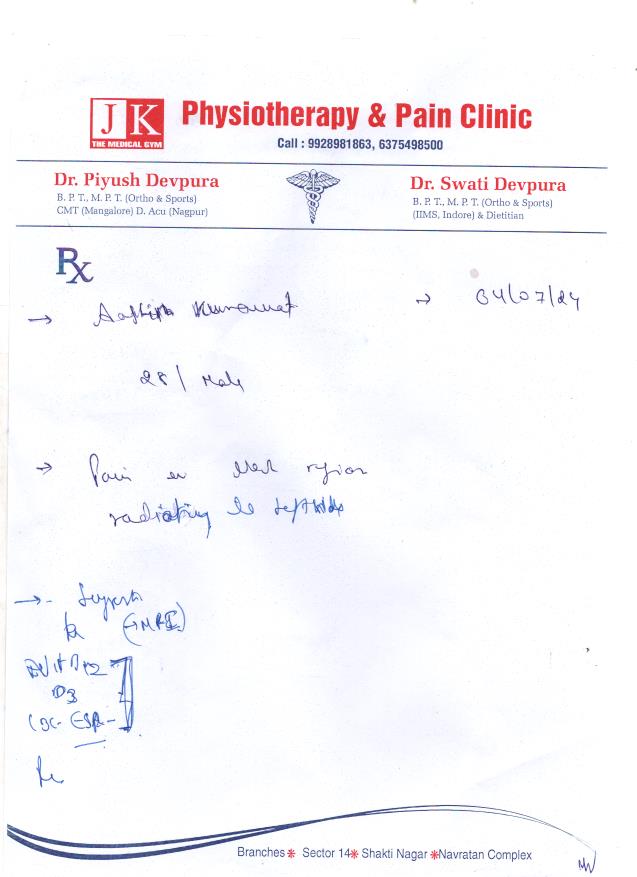 JK
THE MEDICAL GYM
Physiotherapy & Pain Clinic
Call : 9928981863, 6375498500
Dr. Piyush Devpura
B. P. T., M. P. T. (Ortho & Sports)
CMT (Mangalore) D. Acu (Nagpur)
Dr. Swati Devpura
B. P. T., M. P. T. (Ortho & Sports)
(IIMS, Indore) & Dietitian
Rx
→ → 04/07/24
28/ Male
→ Pain in region
radiating to left side
→
(MRI)
B12
D3
CBC- ESR-
Branches✱ Sector 14✱ Shakti Nagar ✱Navratan Complex